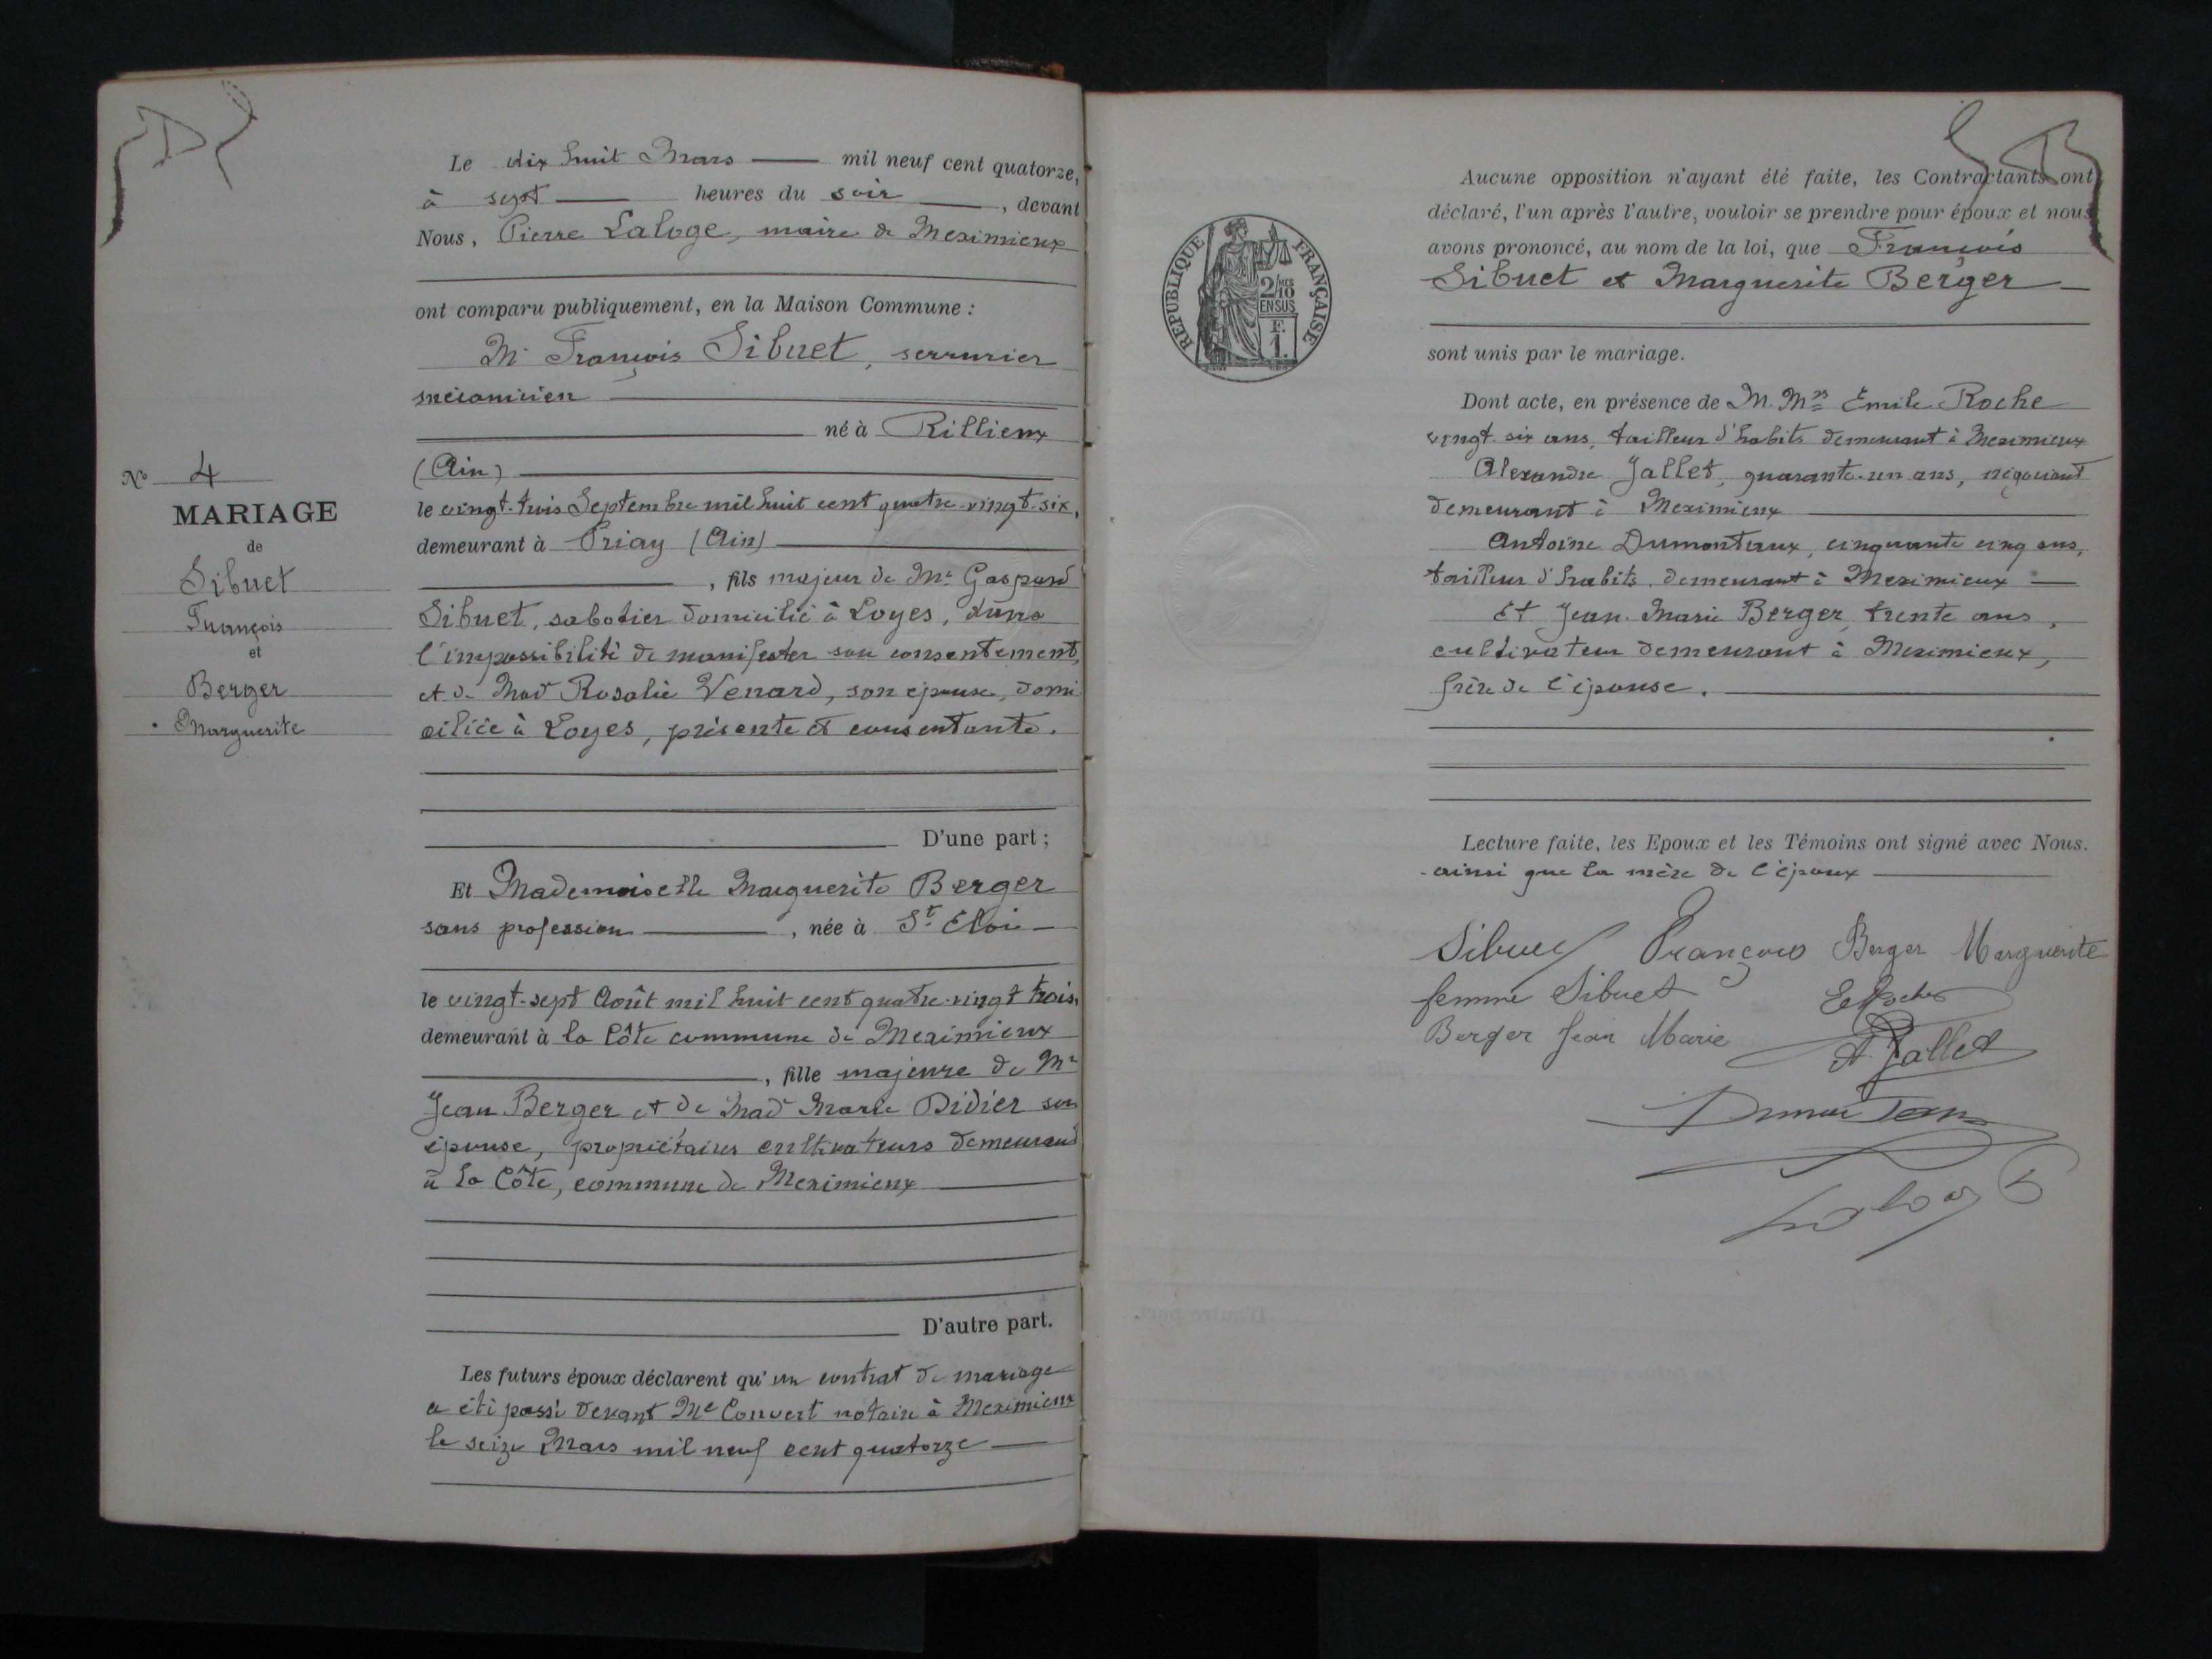 Le dix huit Mars mil neuf cent quatorze,
à sept heures du soir, devant
Nous, Pierre Laloge, maire de Meximieux
ont comparu publiquement, en la Maison Commune :
Mr François Sibuet, serrurier
mécanicien
né à Rillieux
(Ain)
le vingt-trois Septembre mil huit cent quatre-vingt-six,
demeurant à Priay (Ain)
, fils majeur de Mr Gaspard
Sibuet, sabotier domicilié à Loyes, dans
l'impossibilité de manifester son consentement,
et de Mad Rosalie Venard, son épouse, domi
ciliée à Loyes, présente et consentante.
D'une part ;
Et Mademoiselle Marguerite Berger
sans profession, née à St Eloi
le vingt-sept Août mil huit cent quatre-vingt trois,
demeurant à la Côte commune de Meximieux
, fille majeure de Mr
Jean Berger et de Mad Marie Didier son
épouse, propriétaires cultivateurs demeurant
à la Côte, commune de Meximieux
D'autre part.
Les futurs époux déclarent qu'un contrat de mariage
a été passé devant Me Convert notaire à Meximieux
le seize Mars mil neuf cent quatorze
No 4
MARIAGE
de
Sibuet
François
et
Berger
Marguerite
REPUBLIQUE FRANÇAISE
2/10 MES
EN SUS
F.
1.
Aucune opposition n'ayant été faite, les Contractants ont
déclaré, l'un après l'autre, vouloir se prendre pour époux et nous
avons prononcé, au nom de la loi, que François
Sibuet et Marguerite Berger
sont unis par le mariage.
Dont acte, en présence de M. Mrs Emile Roche
vingt-six ans, tailleur d'habits demeurant à Meximieux
Alexandre Jallet, quarante-un ans, négociant
demeurant à Meximieux
Antoine Dumontaux, cinquante cinq ans,
tailleur d'habits demeurant à Meximieux
Et Jean-Marie Berger trente ans,
cultivateur demeurant à Meximieux,
frère de l'épouse.
Lecture faite, les Epoux et les Témoins ont signé avec Nous.
ainsi que la mère de l'époux
Sibuet François Berger Marguerite
femme Sibuet E Roche
Berger Jean Marie A. Jallet
Laloge